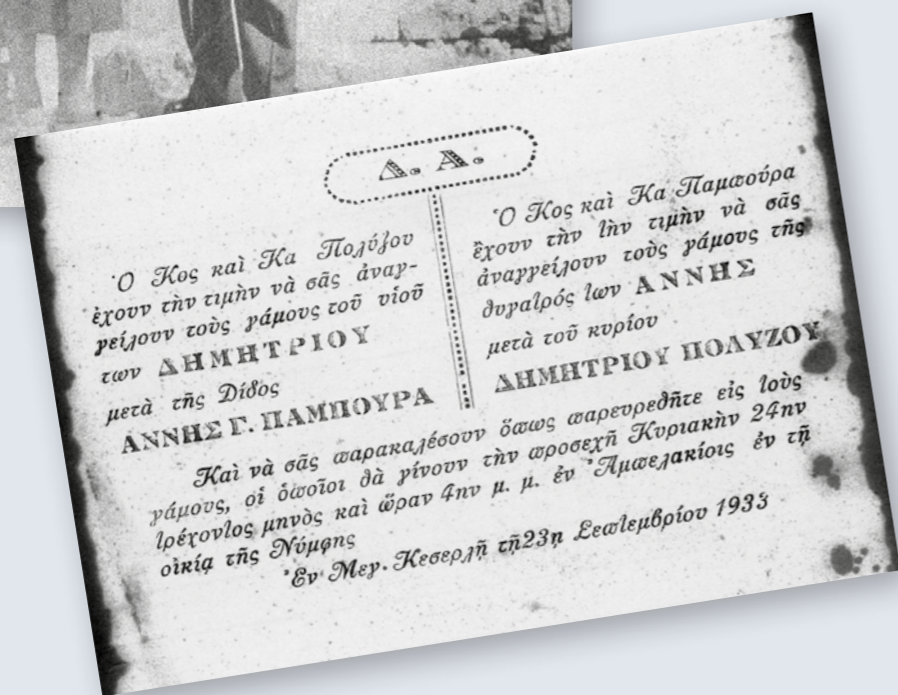 Δ. Α.
Ὁ Κος καὶ Κα Πολύζου
ἔχουν τὴν τιμὴν νὰ σᾶς ἀναγ-
γείλουν τοὺς γάμους τοῦ υἱοῦ
των ΔΗΜΗΤΡΙΟΥ
μετὰ τῆς Δίδος
ΑΝΝΗΣ Γ. ΠΑΜΠΟΥΡΑ
Ὁ Κος καὶ Κα Παμπούρα
ἔχουν τὴν τὴν τιμὴν νὰ σᾶς
ἀναγγείλουν τοὺς γάμους τῆς
θυγατρός των ΑΝΝΗΣ
μετὰ τοῦ κυρίου
ΔΗΜΗΤΡΙΟΥ ΠΟΛΥΖΟΥ
Καὶ νὰ σᾶς παρακαλέσουν ὅπως παρευρεθῆτε εἰς τοὺς
γάμους, οἱ ὁποῖοι θὰ γίνουν τὴν προσεχῆ Κυριακὴν 24ην
τρέχοντος μηνὸς καὶ ὥραν 4ην μ. μ. ἐν Ἀμπελακίοις ἐν τῇ
οἰκίᾳ τῆς Νύμφης
Ἐν Μεγ. Κεσερλῆ τῇ 23ῃ Σεπτεμβρίου 1933